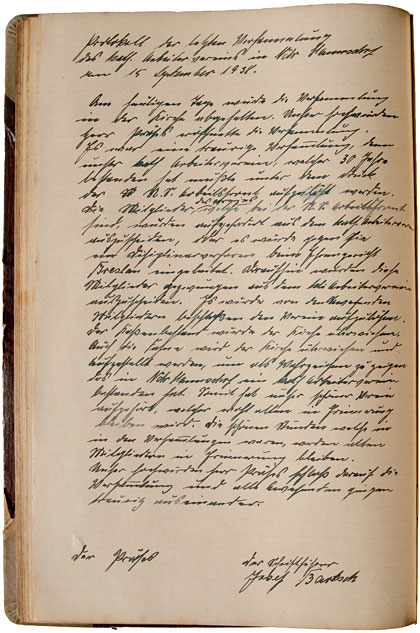 Protokoll der letzten Versammlung
des kath. Arbeitervereins in Ndr. Hannsdorf
am 15 September 1938.
Am heutigen Tage wurde die Versammlung
in der Kirche abgehalten. Unser hochwürden
Herr Präses eröffnete die Versammlung.
Es war eine traurige Versammlung, denn
unser kath Arbeiterverein, welcher 30 Jahre
bestanden hat mußte unter dem Druck
der N.S. Arbeitsfront aufgelöst werden.
Die Mitglieder, welche bei der N.S. Arbeitsfront
sind, wurden aufgefordert aus dem kath. Arbeiterverein
auszuscheiden, oder es würde gegen sie
ein Disziplinarverfahren beim Ehrengericht
Breslau eingeleitet. Daraufhin wurden diese
Mitglieder gezwungen aus dem kath Arbeiterverein
auszuscheiden. Es wurde von den Anwesenden
Mitgliedern beschlossen den Verein aufzulösen.
Der Kassenbestand wurde der Kirche überwiesen.
Auch die Fahne wird der Kirche überwiesen und
aufgestellt werden, um als Wahrzeichen zu zeigen
das in Ndr. Hannsdorf ein kath Arbeiterverein
bestanden hat. Somit hat unser schöner Verein
aufgehört, welcher noch allen in Erinnerung
bleiben wird. Die schönen Stunden welche wir
in den Versammlungen waren, werden allen
Mitgliedern in Erinnerung bleiben.
Unser hochwürden Herr Präses schloß darauf die
Versammlung und alle Anwesenden gingen
traurig auseinander.
Der Präses
Der Schriftführer
Josef Bartsch